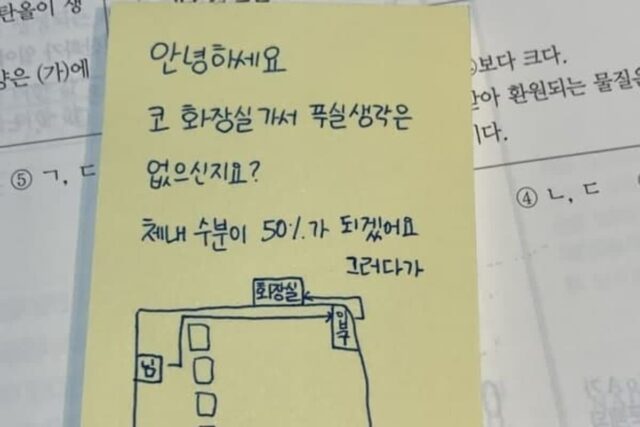 안녕하세요
코 화장실 가서 푸실생각은
없으신지요?
체내 수분이 50%가 되겠어요
그러다가
화장실
입구
님
탄율이 생
양은 (가)에
⑤ ㄱ, ㄷ
보다 크다.
환원되는 물질은
이다.
④ ㄴ, ㄷ